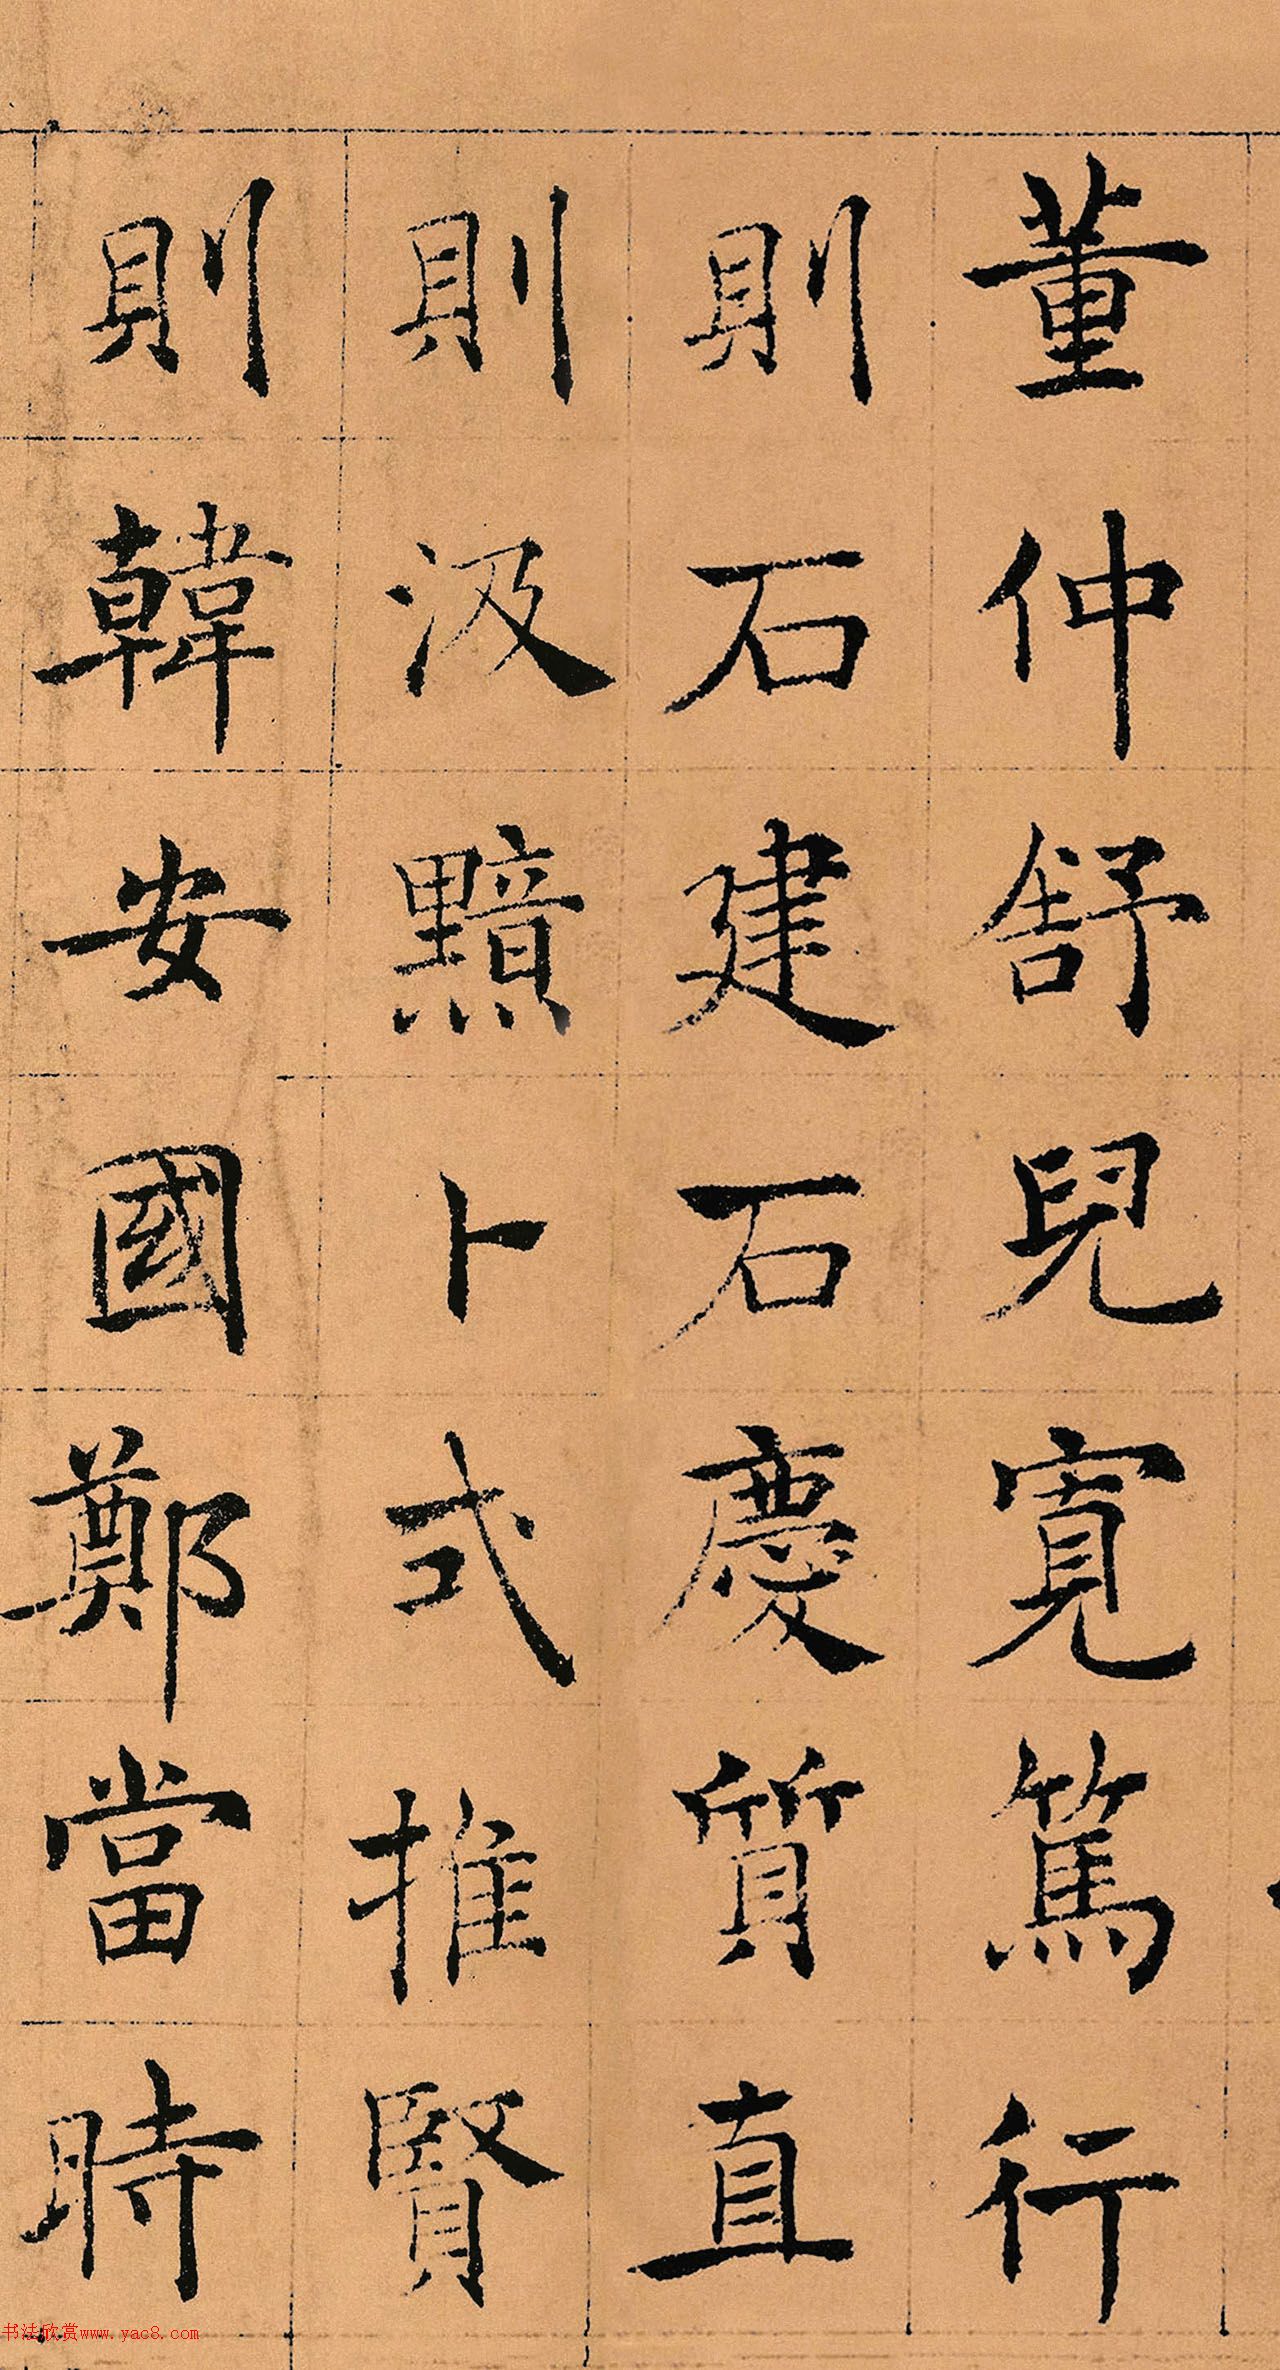 董仲舒兒寬篤行
則石建石慶質直
則汲黯卜式推賢
則韓安國鄭當時
书法欣赏www.yac8.com